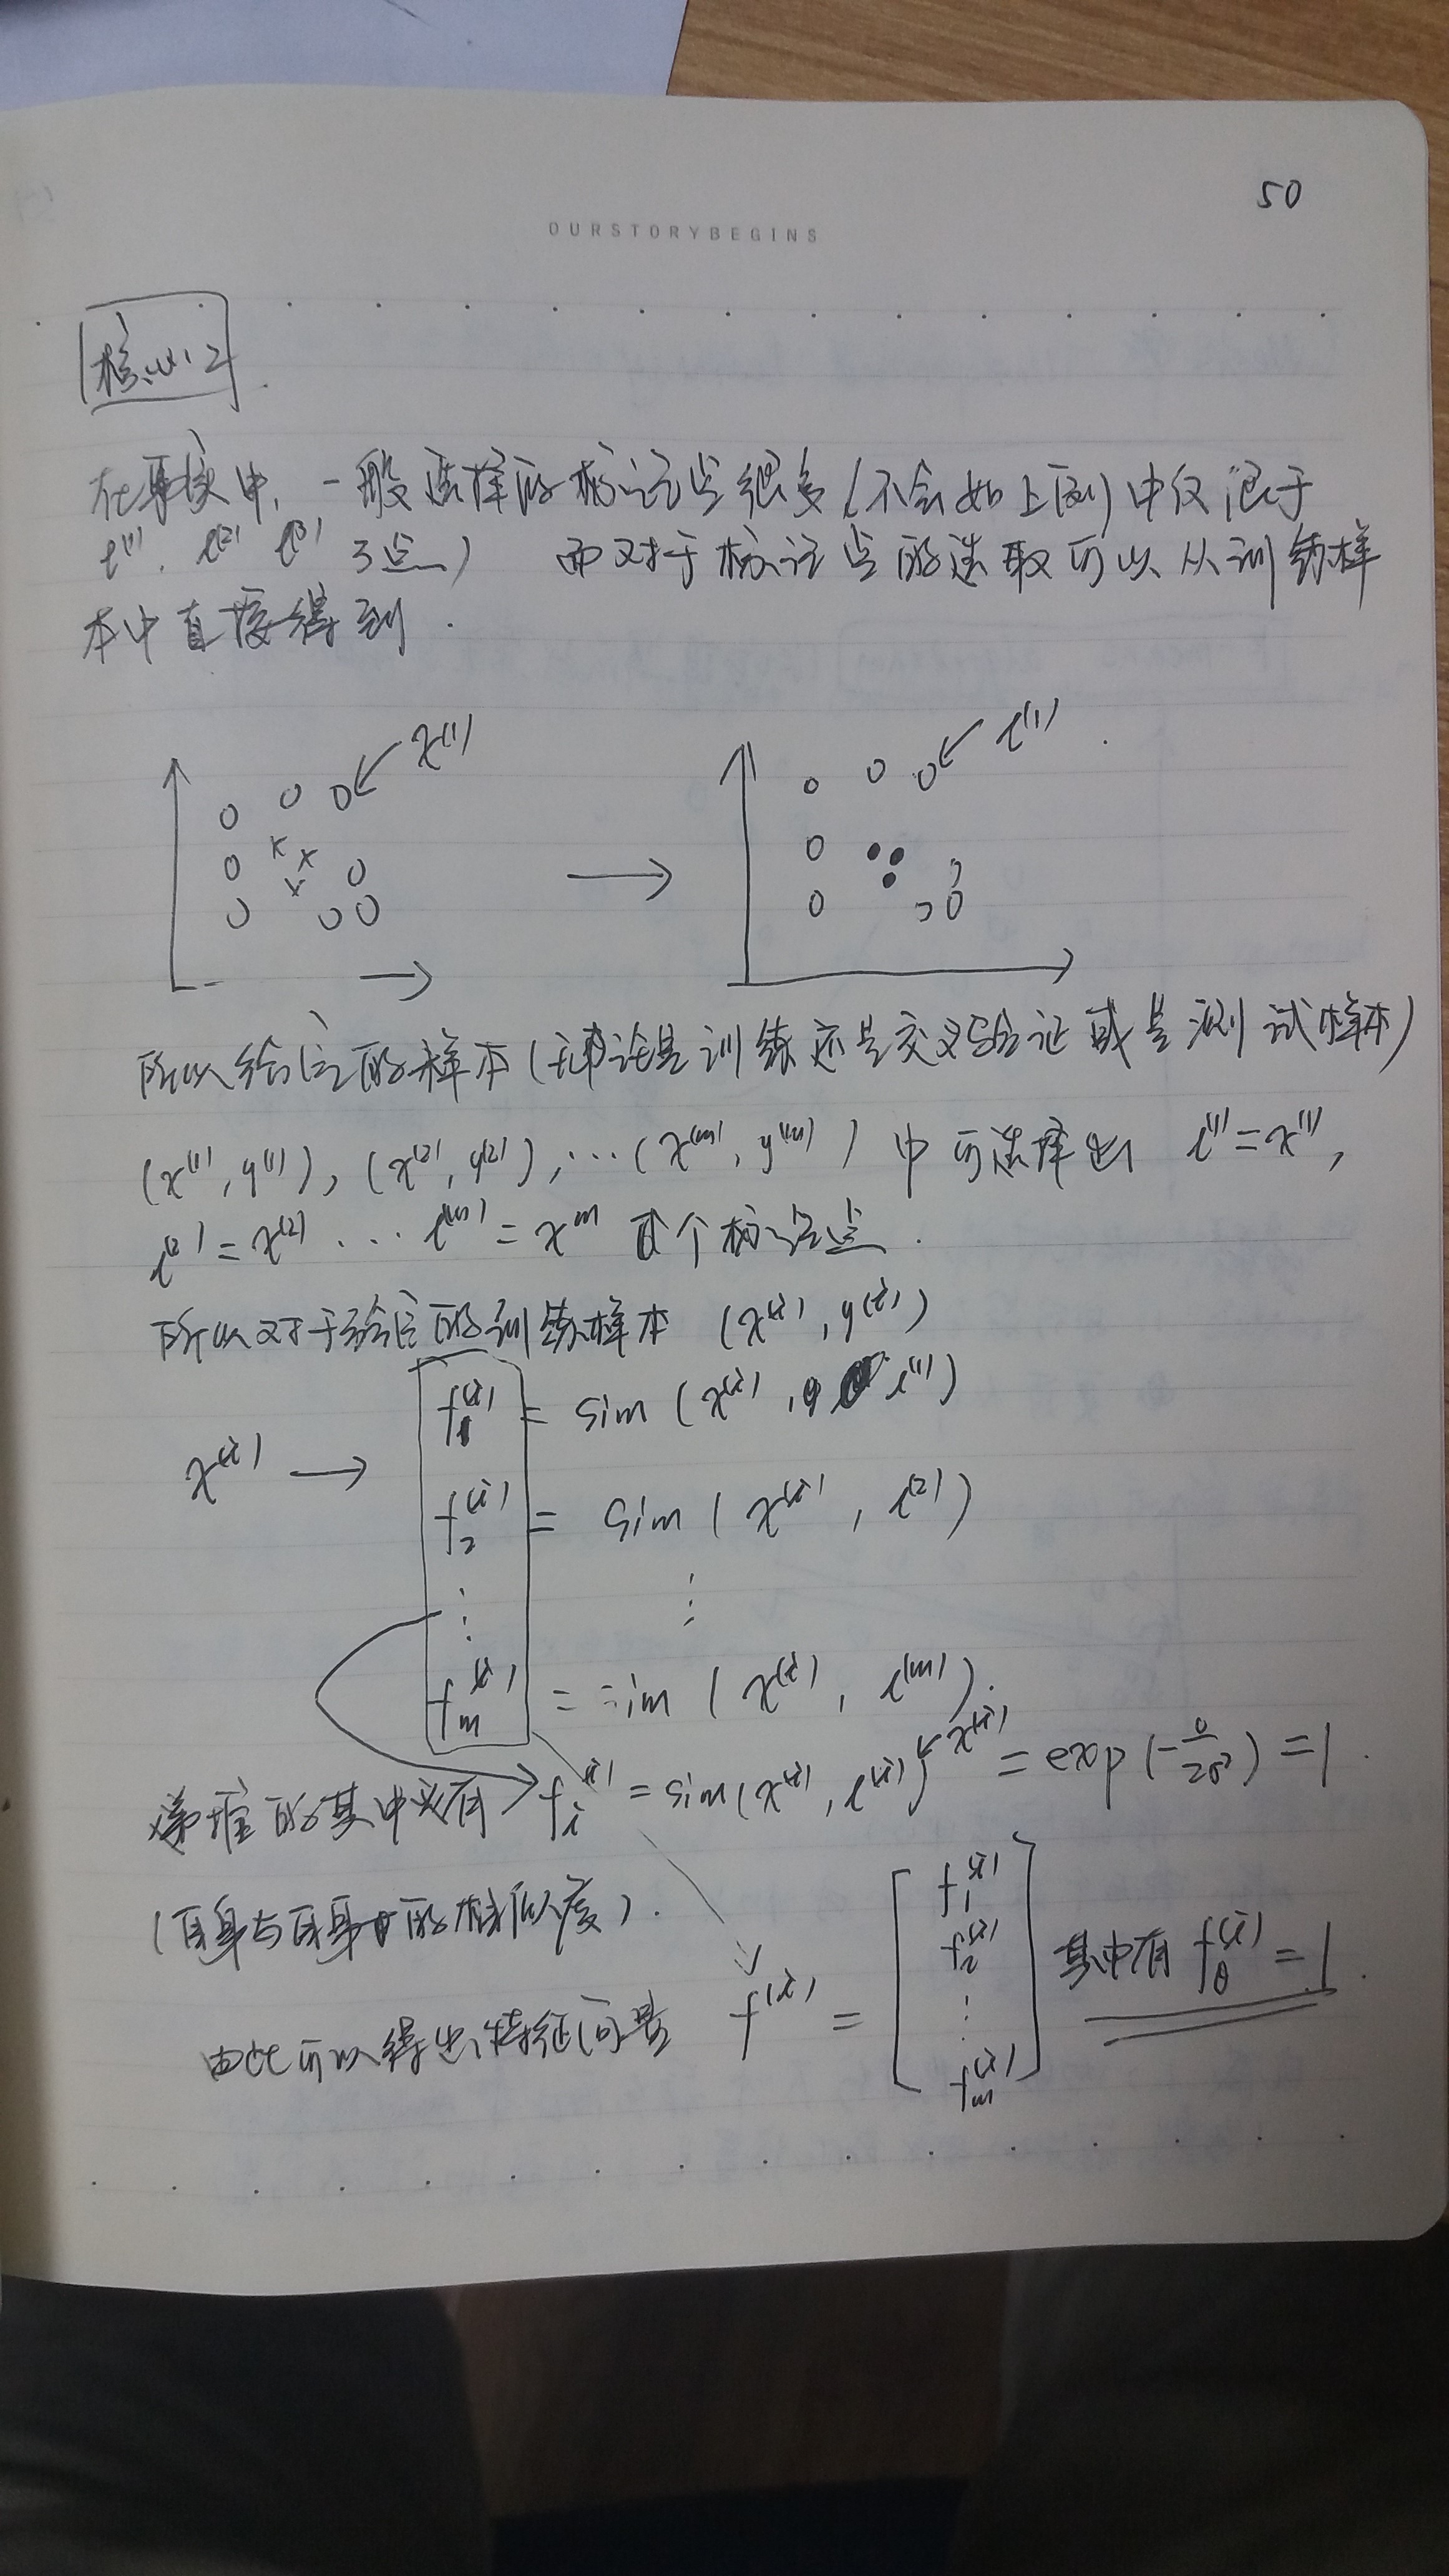 50
OURSTORYBEGINS
核心2
在事实中，一般选择的标记点很多(不会如上例)中仅限于
l⁽¹⁾, l⁽²⁾ l⁽³⁾ 3点) 而对于标记点的选取可以从训练样
本中直接得到.
x⁽¹⁾
l⁽¹⁾
所以给定的样本(无论是训练还是交叉验证或是测试样本)
(x⁽¹⁾, y⁽¹⁾), (x⁽²⁾, y⁽²⁾), ⋯ (x⁽ᵐ⁾, y⁽ᵐ⁾) 中可选择出 l⁽¹⁾ = x⁽¹⁾,
l⁽²⁾ = x⁽²⁾ ⋯ l⁽ᵐ⁾ = xᵐ 个标记点.
所以对于给定的训练样本 (x⁽ⁱ⁾, y⁽ⁱ⁾)
f₁⁽ⁱ⁾ = sim (x⁽ⁱ⁾, l⁽¹⁾)
x⁽ⁱ⁾ →
f₂⁽ⁱ⁾ = sim (x⁽ⁱ⁾, l⁽²⁾)
⋮ ⋮
fₘ⁽ⁱ⁾ = sim (x⁽ⁱ⁾, l⁽ᵐ⁾).
递推的其中必有 → fᵢ⁽ⁱ⁾ = sim(x⁽ⁱ⁾, l⁽ⁱ⁾) ← x⁽ⁱ⁾ = exp(-0/2σ²) = 1.
(自身与自身的相似度).
由此可以得出特征向量 f⁽ⁱ⁾ = [f₁⁽ⁱ⁾ f₂⁽ⁱ⁾ ⋮ fₘ⁽ⁱ⁾] 其中有 f₀⁽ⁱ⁾ = 1.